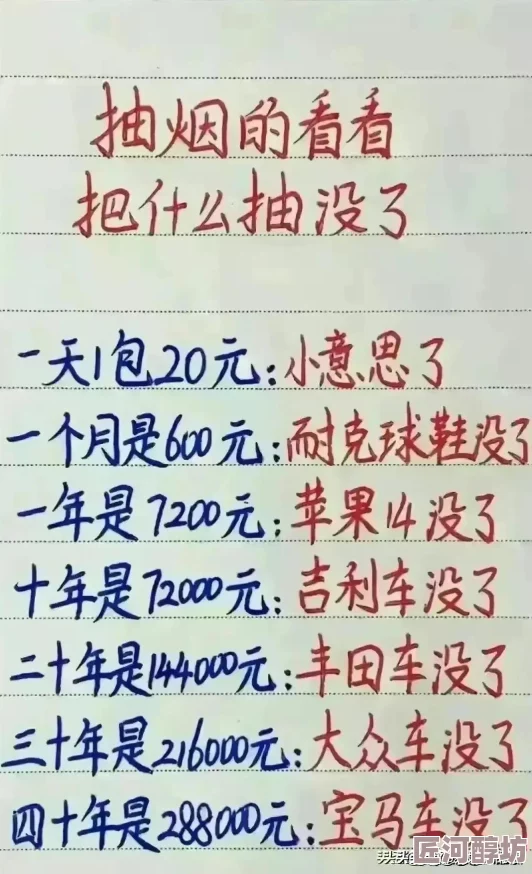 抽烟的看看
把什么抽没了
一天1包20元:小意思了
一个月是600元:耐克球鞋没了
一年是7200元:苹果14没了
十年是72000元:吉利车没了
二十年是144000元:丰田车没了
三十年是216000元:大众车没了
四十年是288000元:宝马车没了
匠河醇坊